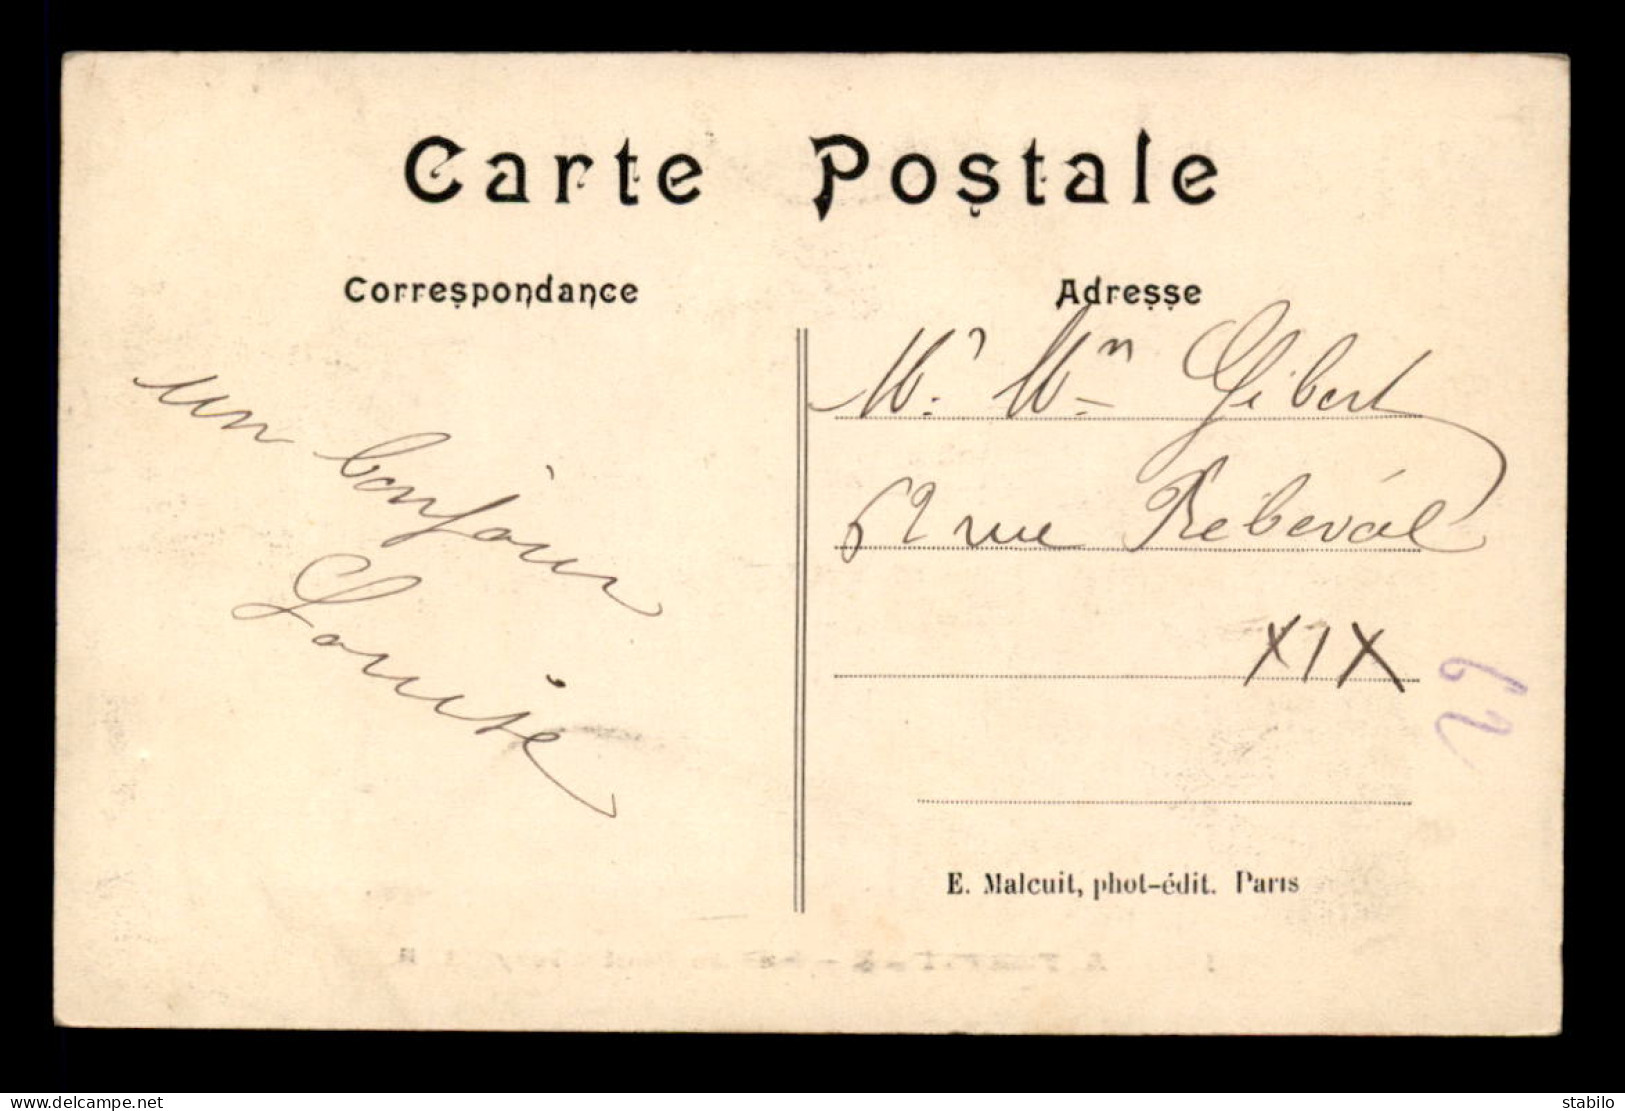 Carte Postale
Correspondance
Adresse
un bonjour
Louise
Mr. Mn Gibert
62 rue Rébeval
XIX
62
E. Malcuit, phot-édit. Paris
www.delcampe.net
stabilo